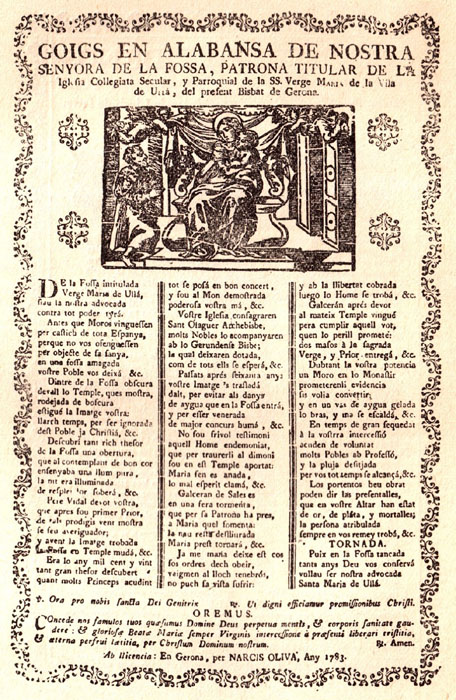 GOIGS EN ALABANSA DE NOSTRA
SENYORA DE LA FOSSA, PATRONA TITULAR DE LA
Iglesia Collegiata Secular, y Parroquial de la SS. Verge MARIA de la Vila
de Ullá, del present Bisbat de Gerona.
DE la Fossa intitulada
Verge Maria de Ullá,
siau la nostra advocada
contra tot poder
Antes que Moros vinguessen
per castich de tota Espanya,
perque no vos ofenguessen
per objecte de sa sanya,
en una fossa amagada
vostre Poble vos deixá &c.
Dintre de la Fossa obscura
devall lo Temple, ques mostra,
rodejada de boscura
estigué la Imatge vostra:
llarch temps, per ser ignorada
dest Poble ja Christiá, &c.
Descubrí tant rich thesor
de la Fossa una obertura,
que al contemplant de bon cor
ensenyaba una llum pura,
la nit era illuminada
de resplendor soberá, &c.
Pere Vidal devot vostre,
que apres fou primer Prior,
de tals prodigis vent mostra
se feu averiguador;
y avent la Imatge trobada
la Fossa en Temple mudá, &c.
Era lo any mil cent y vint
tant gran thesor descubert
quant molts Princeps acudint
tot se posá en bon concert,
y fou al Mon demostrada
poderosa vostra má, &c.
Vostre Iglesia consagraren
Sant Olaguer Archebisbe,
molts Nobles lo acompanyaren
ab lo Gerundense Bisbe;
la qual deixaren dotada,
com de tots ells se esperá, &c.
Passats aprés seixanta anys
vostre Imatge's trasladá
dalt, per evitar als danys
de aygua que en la Fossa entrá,
y per esser venerada
de major concurs humá, &c.
No fou frivol testimoni
aquell Home endemoniat,
que per traurerli al dimoni
fou en est Temple aportat:
Maria fen es anada,
lo mal esperit clamá, &c.
Galceran de Sales es
en una fera tormenta,
que per sa Patrona ha pres,
a Maria quel fomenta:
la nau restá desllíurada
Maria prest tornará, &c.
Ja me maria deixe est cos
sos ordres dech obeir,
veigmen al lloch tenebrós,
no puch sa vista sufrir:
y ab la llibertat cobrada
luego lo Home se trobá, &c.
Galcerán aprés devot
al mateix Temple vingué
pera cumplir aquell vot,
quen lo perill prometé:
dos masos á la sagrada
Verge, y Prior entregá, &c.
Dubtant la vostra potencia
un Moro en lo Monastir
prometerenli evidencia
sis volia convertir;
y en un vas de aygua gelada
lo bras, y ma se escaldá, &c.
En temps de gran sequedat
á la vostra intercessió
acuden de voluntat
molts Pobles ab Professó,
y la pluja desitjada
per vos tot temps se alcançá, &c.
Los portentos beu obrat
poden dir las presentalles,
que en vostre Altar han estat
de or, de plata, y mortalles;
la persona atribulada
sempre en vos remey trobá, &c.
TORNADA.
Puix en la Fossa tancada
tants anys Deu vos conservá
vullau ser nostra advocada
Santa Maria de Ullá.
℣. Ora pro nobis sancta Dei Genitrix ℟. Ut digni efficiamur promissionibus Christi.
OREMUS.
Concede nos famulos tuos quæsumus Domine Deus perpetua mentis, & corporis sanitate gau-
dere: & gloriosæ Beatæ Mariæ semper Virginis intercessione à præsenti liberari tristitia,
& æterna perfrui lætitia, per Christum Dominum nostrum. ℟. Amen.
Ab llicencia: En Gerona, per NARCIS OLIVA, Any 1783.